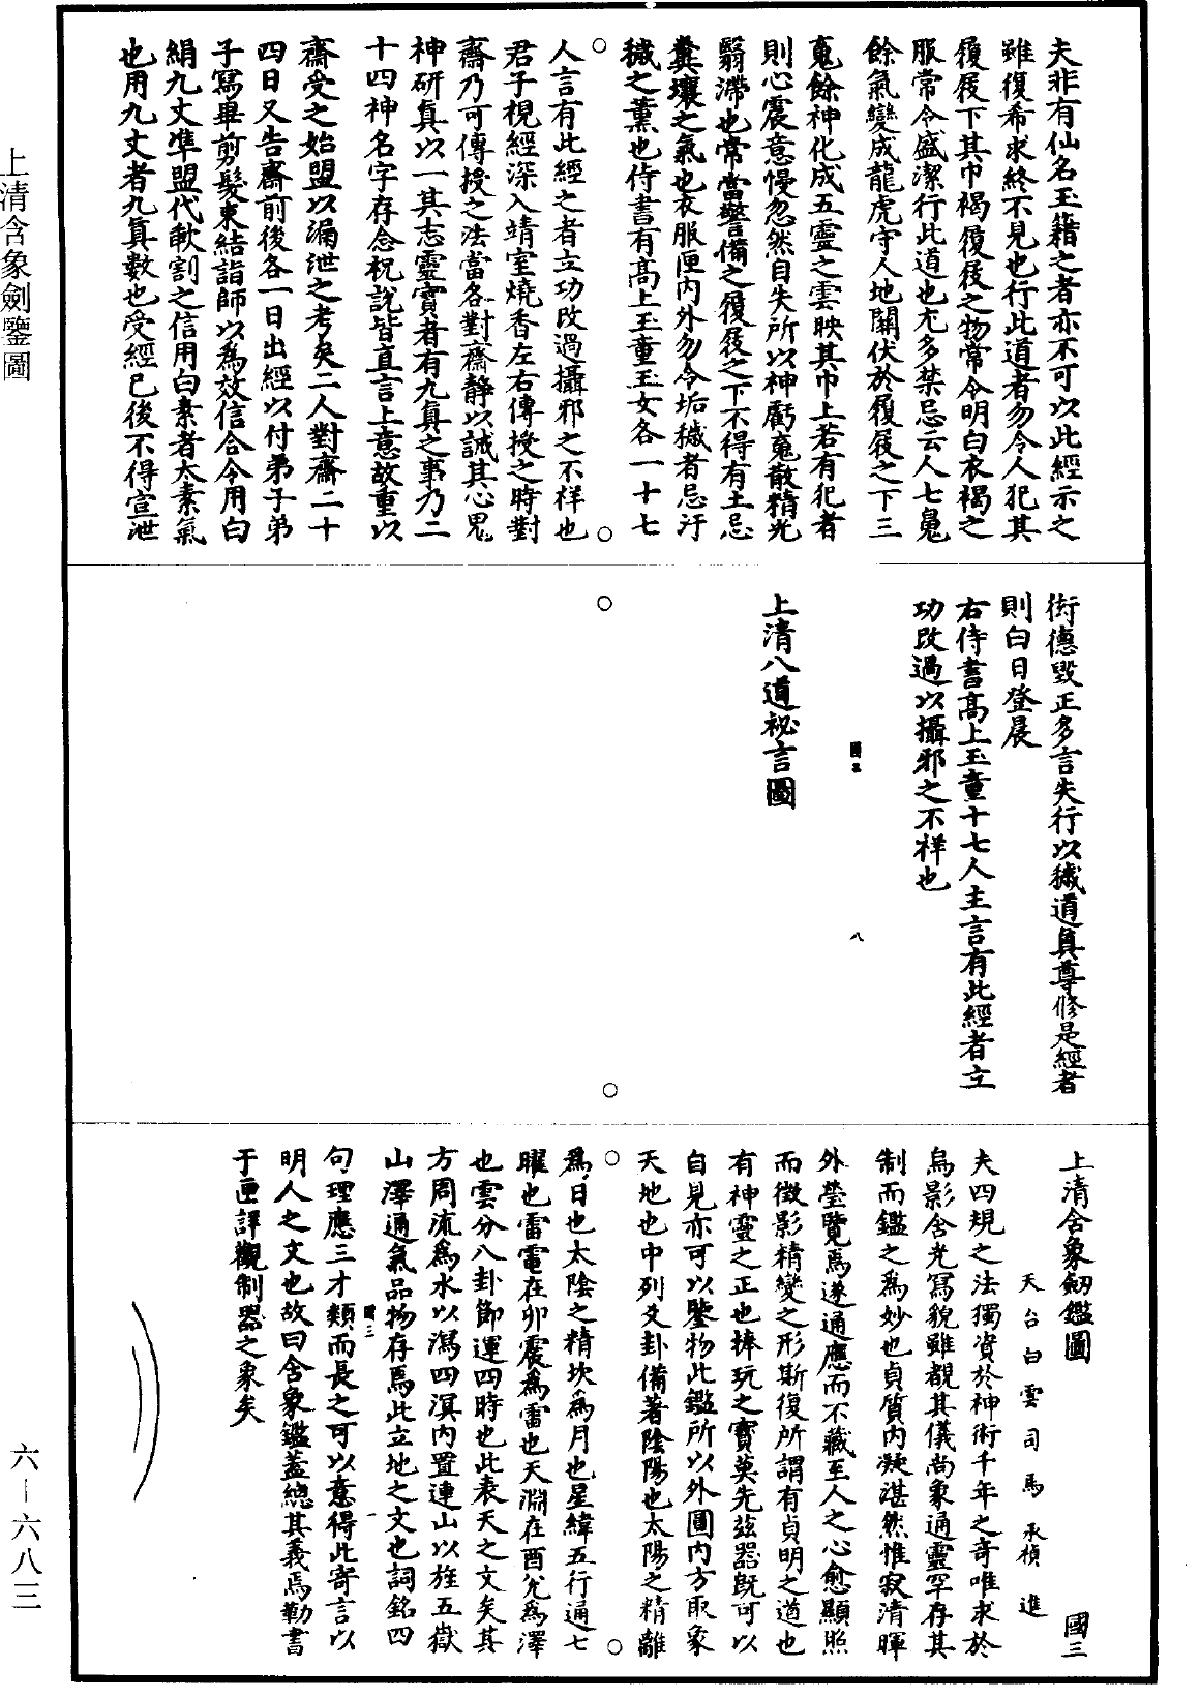 夫非有仙名玉籍之者亦不可以此經示之
雖復希求終不見也行此道者勿令人犯其
履屐下其巾褐履屐之物常令明白衣褐之
服常令盛潔行此道也尤多禁忌云人七魄
餘氣變成龍虎守人地關伏於履屐之下三
䰟餘神化成五靈之雲映其巾上若有犯者
則心震意慢忽然自失所以神虧䰟散精光
翳滯也常當警備之履屐之下不得有土忌
糞壤之氣也衣服匣內外勿令垢穢者忌汙
穢之薰也侍書有高上玉童玉女各一十七
人言有此經之者立功改過攝邪之不祥也
君子視經深入靖室燒香左右傳授之時對
齋乃可傳授之法當各對齋靜以誠其心思
神研真以一其志靈寶者有九真之事乃二
十四神名字存念祝說皆直言上意故重以
齋受之始盟以漏泄之考矣二人對齋二十
四日又告齋前後各一日出經以付弟子弟
子寫畢剪髮束結詣師以為效信合今用白
絹九丈準盟代歃割之信用白素者太素氣
也用九丈者九真數也受經已後不得宣泄
衒德毀正多言失行以穢道真尊修是經者
則白日登晨
右侍書高上玉童十七人主言有此經者立
功改過以攝邪之不祥也
國三 八
上清八道祕言圖
上清含象劍鑑圖 國三
天台白雲司馬承禎進
夫四規之法獨資於神術千年之奇唯求於
烏影含光寫貌雖覩其儀尚象通靈罕存其
制而鑑之為妙也貞質內凝湛然惟寂清暉
外瑩覽焉遂通應而不藏至人之心愈顯照
而徵影精變之形斯復所謂有貞明之道也
有神靈之正也捧玩之寶莫先茲器既可以
自見亦可以鑒物此鑑所以外圓內方取象
天地也中列爻卦備著陰陽也太陽之精離
為日也太陰之精坎為月也星緯五行通七
曜也雷電在卯震為雷也天淵在酉兌為澤
也雲分八卦節運四時也此表天之文矣其
方周流為水以瀉四溟內置連山以旌五嶽
山澤通氣品物存焉此立地之文也詞銘四
國三 一
句理應三才類而長之可以意得此寄言以
明人之文也故曰含象鑑蓋總其義焉勒書
于匣詳觀制器之象矣
上清含象劍鑒圖
六—六八三